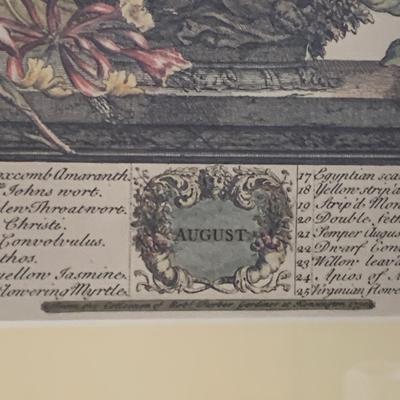 oxcomb Amaranth.
Johns wort.
den Throatwort.
Christi.
Convolvulus.
thos.
yellow Jasmine.
lowering Myrtle.
AUGUST
17 Egyptian sca
18 Yellow strip'd
19 Strip'd Mon
20 Double feth
21 Semper Augus
22 Dwarf Con
23 Willow leav'd
24 Apios of
25 Virginian flowe
From the Collection of Robt. Furber Gardiner at Kensington